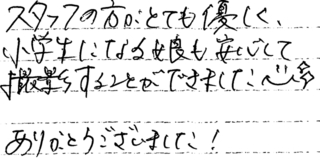 スタッフの方がとても優しく、
小学生になる娘も安心して
撮影することができました
ありがとうございました！